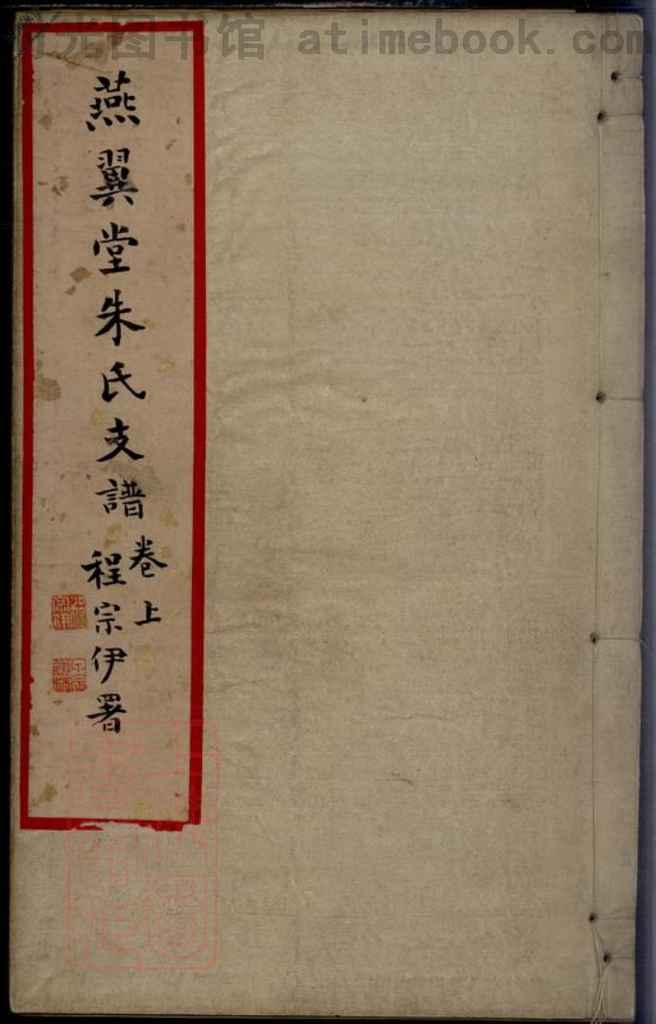 时光图书馆 atimebook.com
燕翼堂朱氏支譜
卷上
程宗伊署